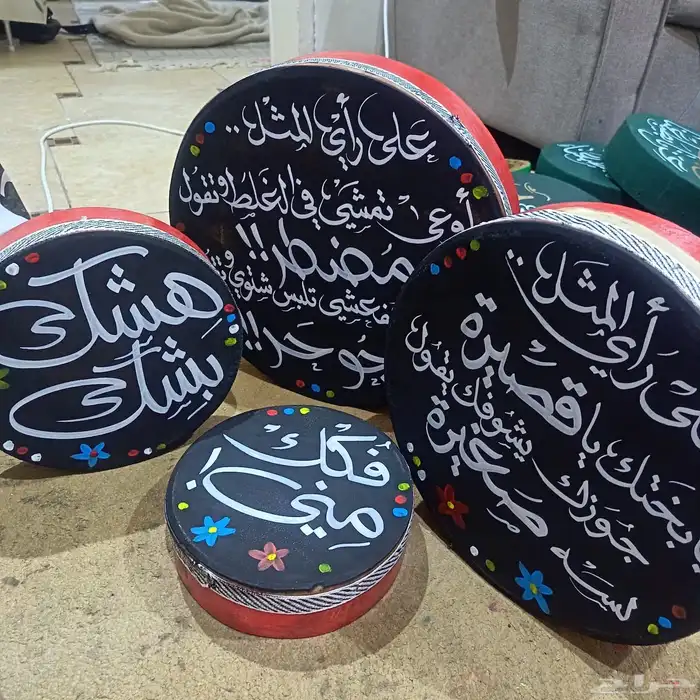 على رأي المثل ..
أوعى تمشي في الغلط وتقول
مضطر!!
تلبس شلوي
جو حر!!
هشك
بشك
فكك
مني!
على رأي المثل:
يا بختك يا قصيرة
جوزك يشوفك يقول
لسه صغيرة